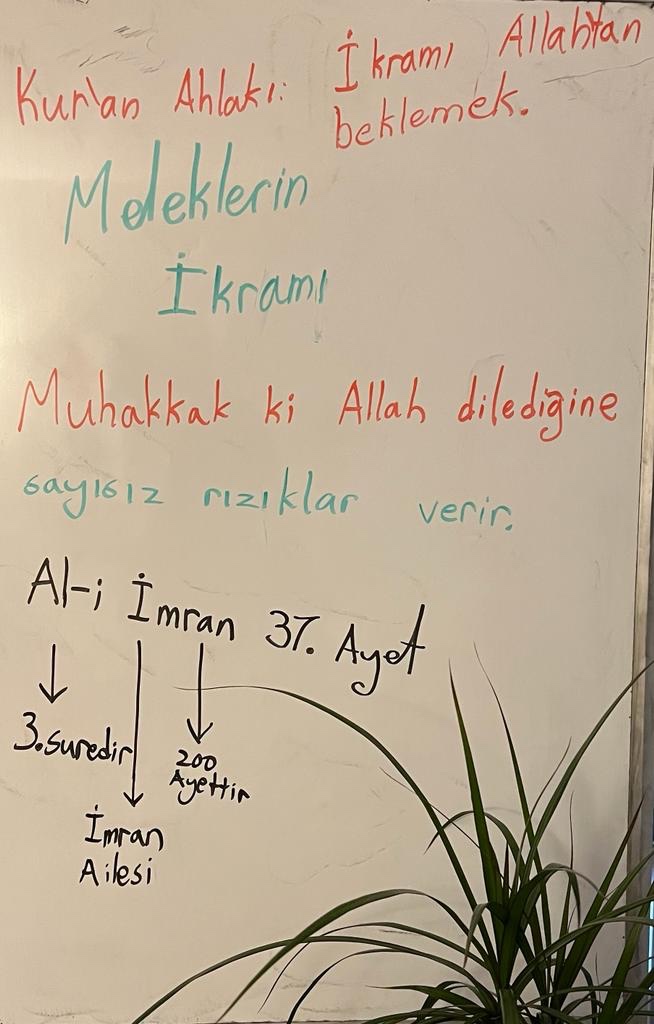 Kur'an Ahlakı: İkramı Allah'tan
beklemek.
Meleklerin
İkramı
Muhakkak ki Allah dilediğine
sayısız rızıklar verir.
Al-i İmran 37. Ayet
3.suredir
200
Ayettir
İmran
Ailesi